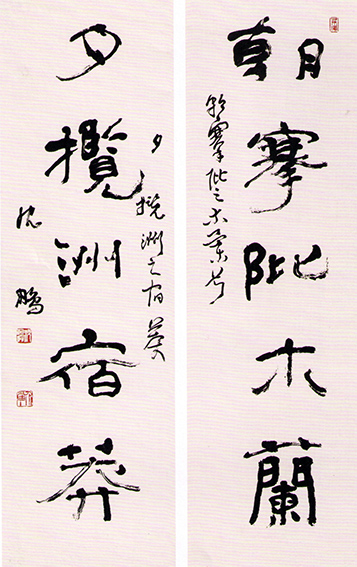 朝搴阰木蘭
朝搴阰之木蘭兮
夕攬洲宿莽
夕攬洲之宿莽
沈鵬